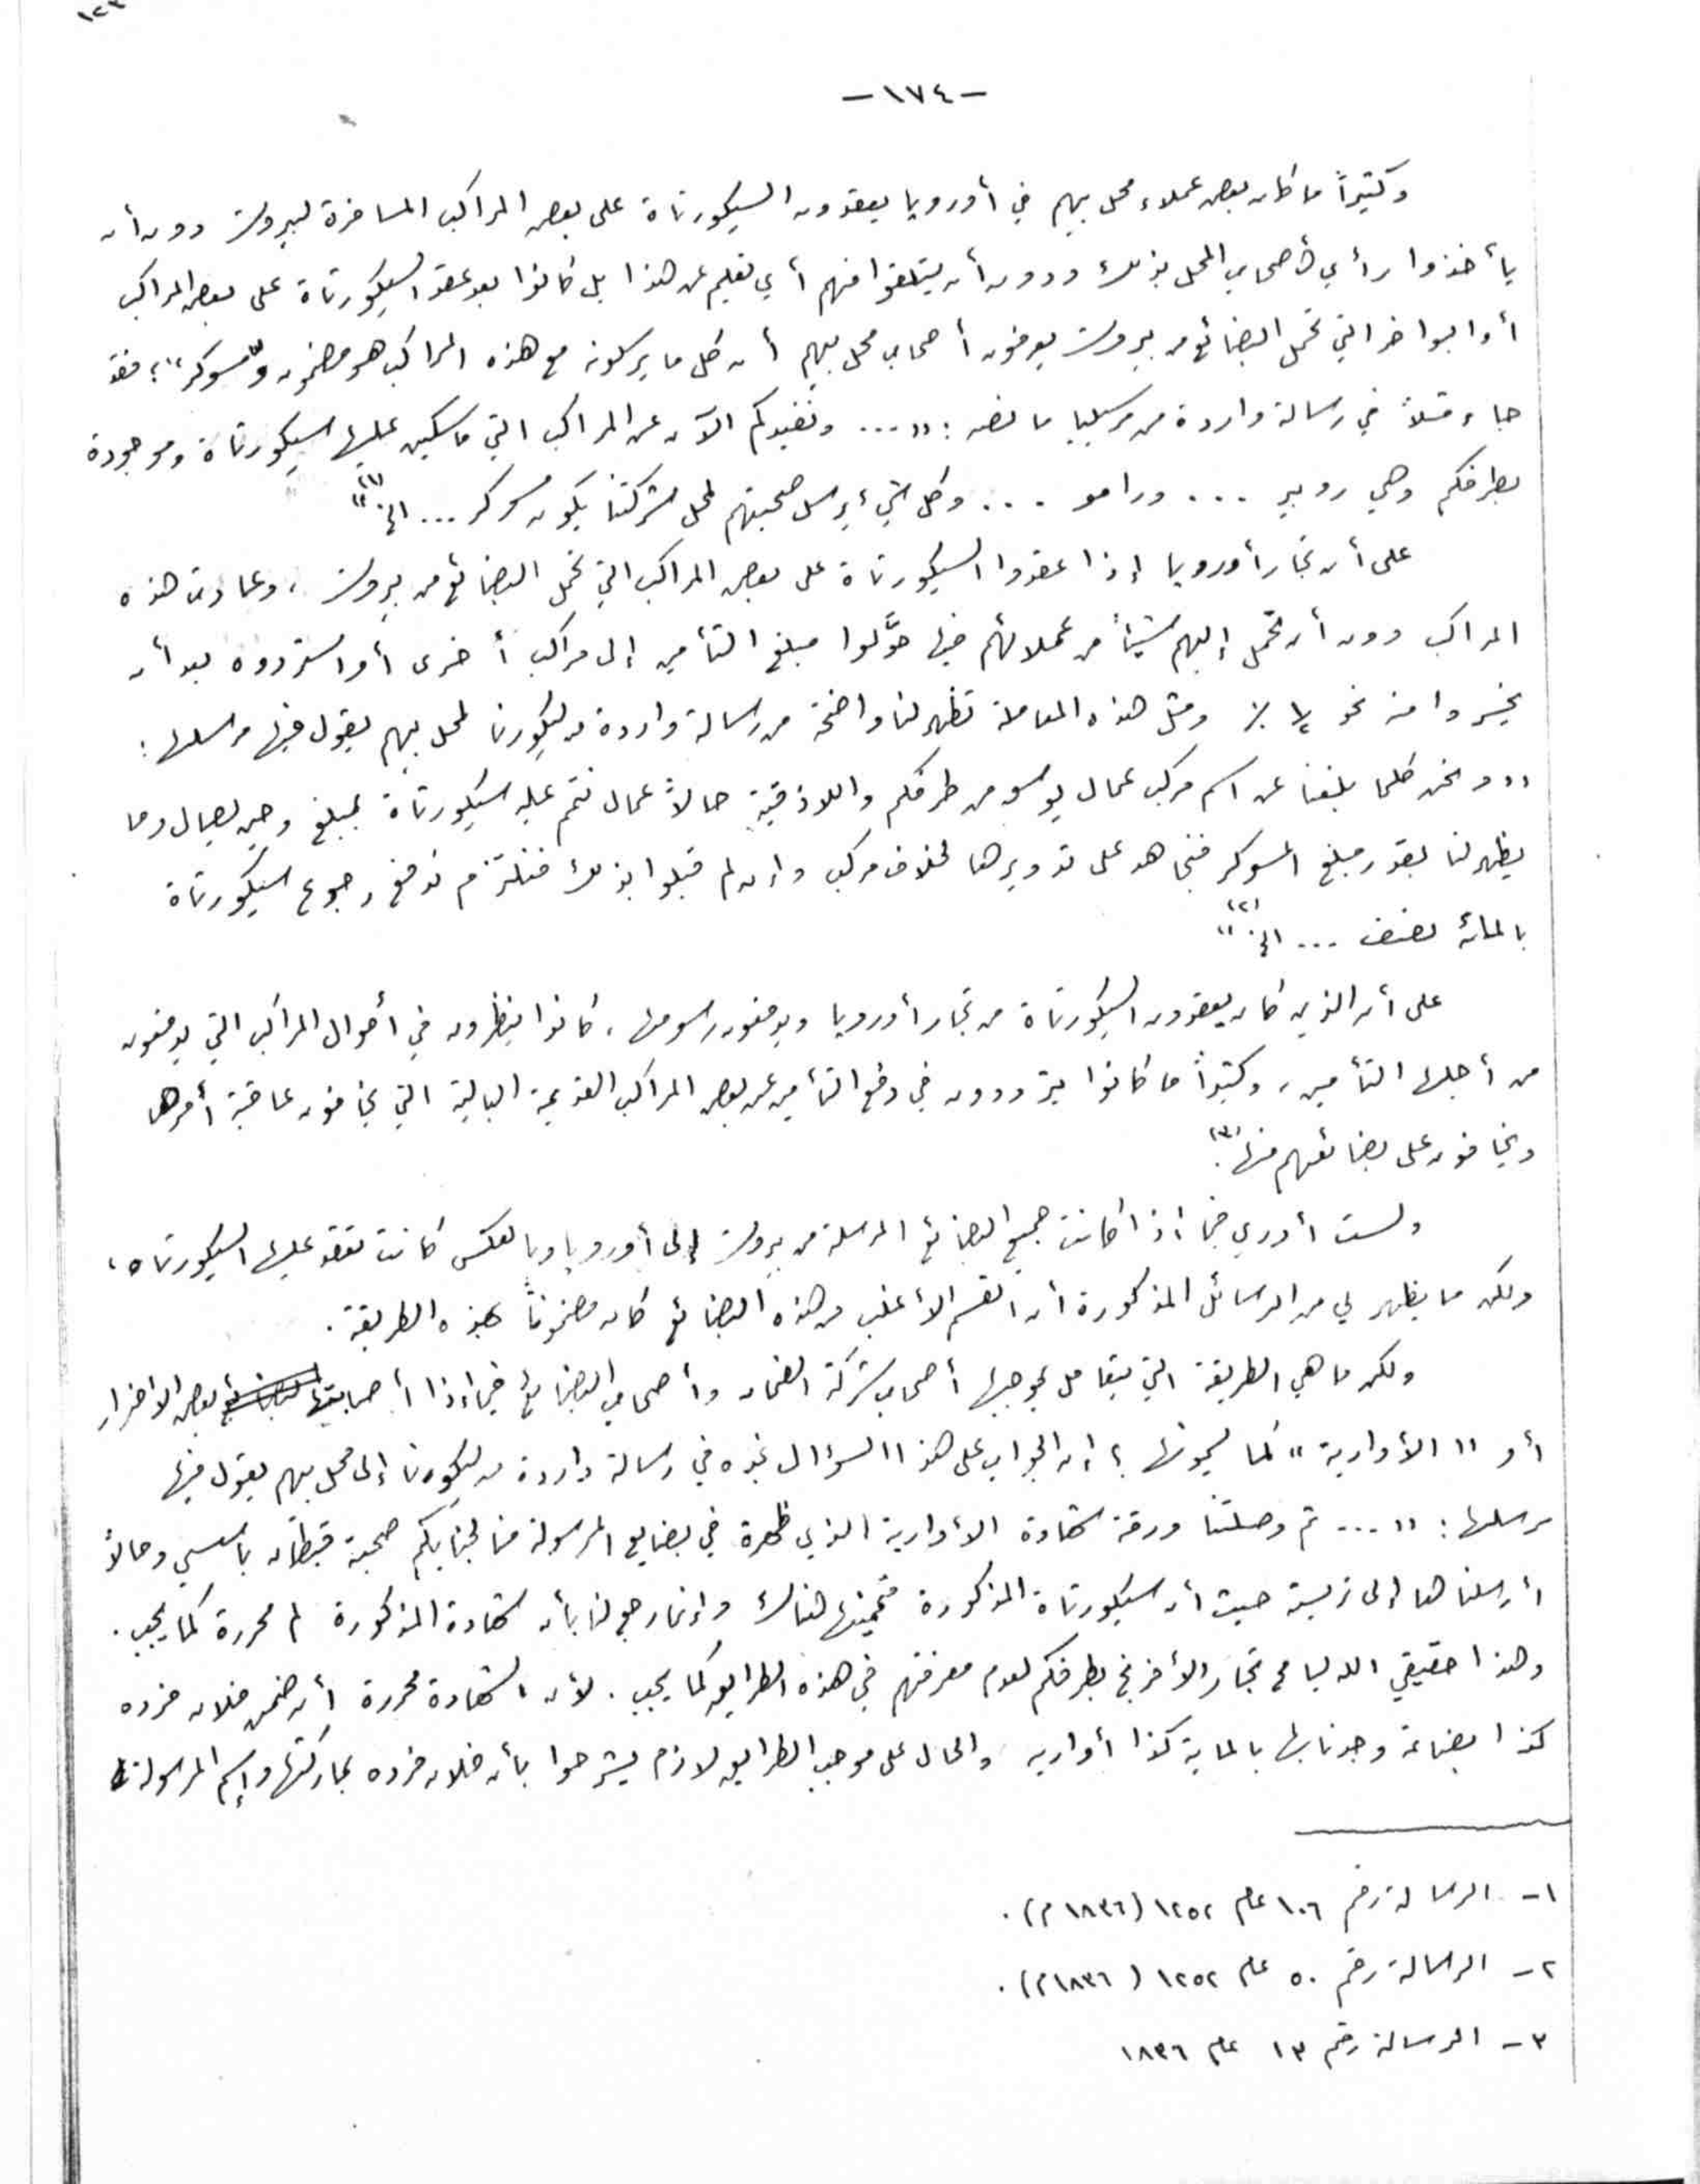 ١٢٣
-١٧٤-
وكثيراً ما كان بعض عملاء محل بيهم في أوروبا يعقدون السيكورتاة على بعض المراكب المسافرة لبيروت دون أن
يأخذوا رأي أصحاب المحل بذلك ودون أن يتلقوا منهم أي تعليم عن هذا بل كانوا بعد عقد السيكورتاة على بعض المراكب
أو البواخر التي تحمل البضائع من بيروت يعرفون أصحاب محل بيهم أن كل ما يرسلونه مع هذه المراكب هو مضمون و"مسوكر"؛ فقد
جاء مثلاً في رسالة واردة من مرسيليا ما نصه: "... ونفيدكم الآن عن المراكب التي ماسكين عليها سيكورتاة وموجودة
بطرفكم وهي روبير ... ورامو .... وكل شيء يرسل صحبتهم لمحل شركتنا يكون مسوكر ... الخ"(١)
على أن تجار أوروبا إذا عقدوا السيكورتاة على بعض المراكب التي تحمل البضائع من بيروت، وعادت هذه
المراكب دون أن تحمل إليهم شيئاً من عملائهم فيها حوَّلوا مبلغ التأمين إلى مراكب أخرى أو استردوه بعد أن
يخسروا منه نحو ½ ٪ ومثل هذه المعاملة تظهر لنا واضحة من رسالة واردة من ليكورنا لمحل بيهم يقول فيها مرسلها:
"ونحن كلما بلغنا عن اسم مركب عمال يوسو من طرفكم واللاذقية حالاً عمال نتمم عليه سيكورتاة بمبلغ وحين لصيال وما
يظهر لنا بقدر مبلغ المسوكر فنجاهد على تدويرها لخلاف مركب وإن لم قبلوا بذلك فنلتزم ندفع رجوع سيكورتاة
بالمائة نصف ... الخ"(٢)
على أن الذين كان يعقدون السيكورتاة من تجار أوروبا ويدفعون رسومها، كانوا ينظرون في أحوال المراكب التي يدفعون
من أجلها التأمين، وكثيراً ما كانوا يترددون في دفع التأمين عن بعض المراكب القديمة البالية التي يخافون عاقبة أمرها
ويخافون على بضائعهم منها(٣).
ولست أدري فيما إذا كانت جميع البضائع المرسلة من بيروت إلى أوروبا وبالعكس كانت تعقد عليها السيكورتاه،
ولكن ما يظهر لي من الرسائل المذكورة أن القسم الأغلب من هذه البضائع كان مضموناً بهذه الطريقة.
ولكن ما هي الطريقة التي يتعامل بموجبها أصحاب شركة الضمان وأصحاب البضائع فيما إذا أصابتها بعض الأضرار
أو "الأوارية" كما يسمونها؟ إن الجواب على هذا السؤال نجده في رسالة واردة من ليكورنا إلى محل بيهم يقول فيها
مرسلها: "... ثم وصلتنا ورقة شهادة الأوارية الذي ظهرة في بضايع المرسولة منا لجنابكم صحبة قبطان باسسي وحالاً
أرسلناها إلى تريستة حيث أن سيكورتاة المذكورة متممينها هناك وإنما رجع لنا بأن شهادة المذكورة لم محررة كما يجب.
وهذا حقيقي الله يسامح تجار الأفرنج بطرفكم لعدم معرفتهم في هذه الطرايق كما يجب. لأن الشهادة محررة أن ضمن فلان فرده
كذا بضاعة وجدنا بها بالماية كذا أواريه والحال على موجب الطرايق لازم يشرحوا بأن فلان فرده بماركتها وإسم المرسولة
١- الرسالة رقم ١٠٦ عام ١٢٥٢ (١٨٣٦ م).
٢- الرسالة رقم ٥٠ عام ١٢٥٢ (١٨٣٦ م).
٣- الرسالة رقم ١٣ عام ١٨٣٦